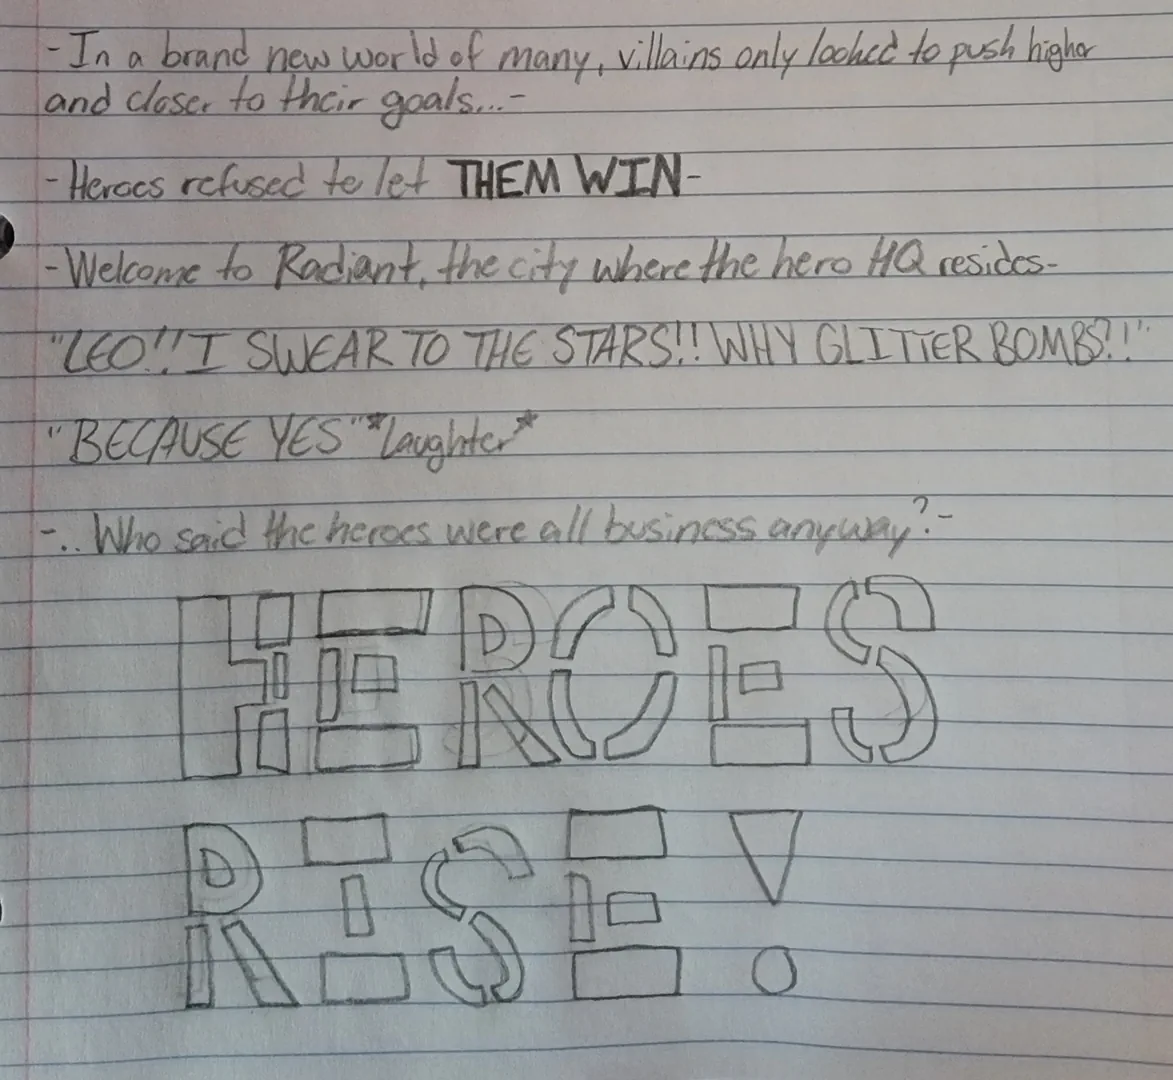 -In a brand new world of many, villains only looked to push higher
and closer to their goals...-
-Heroes refused to let THEM WIN-
-Welcome to Radiant, the city where the hero HQ resides-
"LEO!! I SWEAR TO THE STARS!! WHY GLITTER BOMBS?!"
"BECAUSE YES" *Laughter*
-.. Who said the heroes were all business anyway?-
HEROES
RISE!